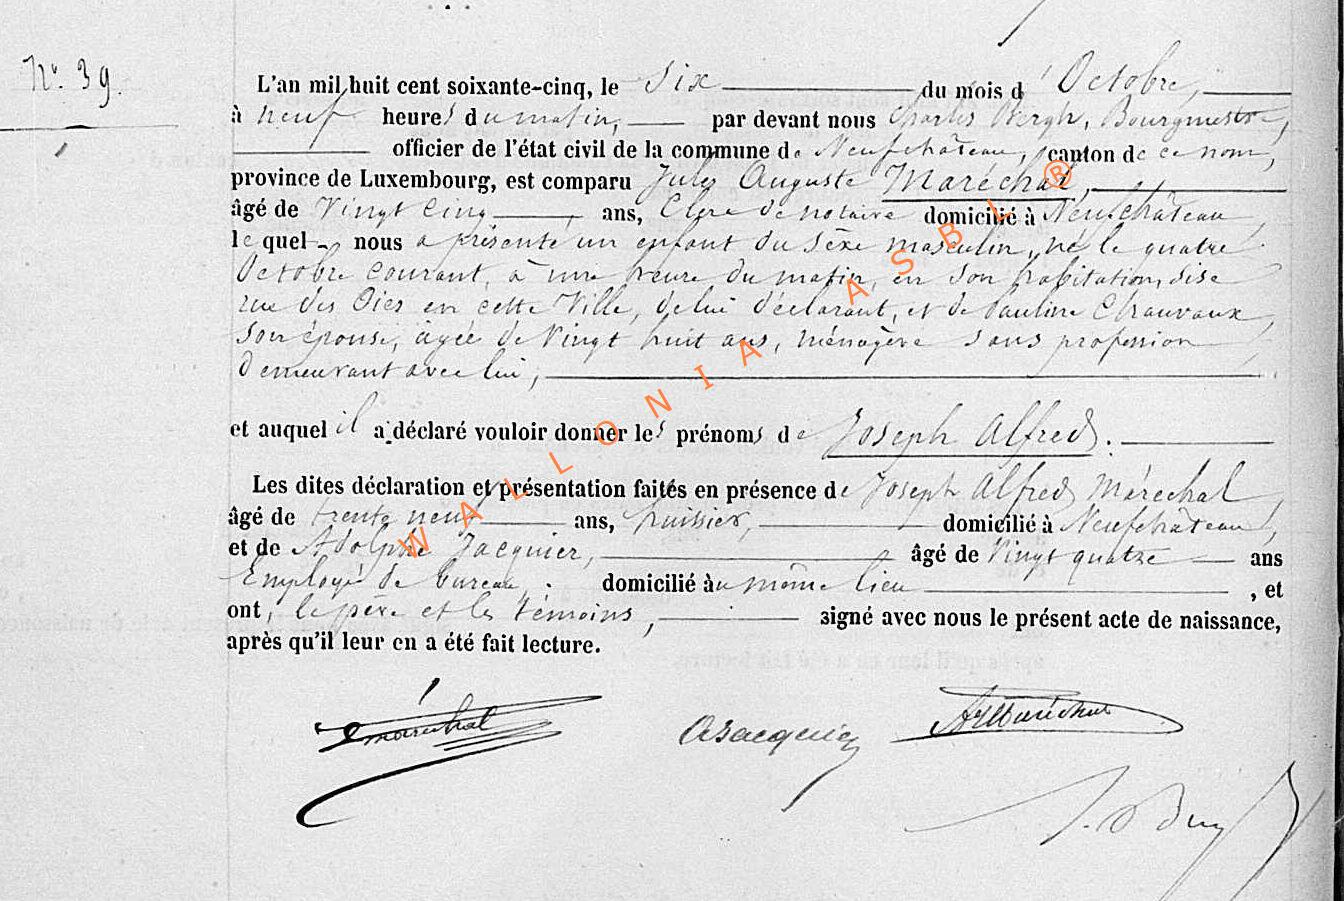 N° 39.
L'an mil huit cent soixante-cinq, le six du mois d'Octobre,
à neuf heures du matin, par devant nous Charles Bergh, Bourgmestre,
officier de l'état civil de la commune de Neufchâteau, canton de ce nom,
province de Luxembourg, est comparu Jules Auguste Maréchal,
âgé de Vingt Cinq ans, Clerc de notaire domicilié à Neufchâteau,
lequel nous a présenté un enfant du sèxe masculin, né le quatre
Octobre courant, à une heure du matin, en son habitation, sise
rue des Oies en cette Ville, de lui déclarant, et de Pauline Chauvaux,
son épouse, agée de Vingt huit ans, ménagère sans profession
demeurant avec lui,
et auquel il a déclaré vouloir donner les prénoms de Joseph Alfred.
Les dites déclaration et présentation faites en présence de Joseph Alfred Maréchal,
âgé de trente neuf ans, huissier, domicilié à Neufchâteau,
et de Adolphe Jacquier, âgé de Vingt quatre ans
Employé de bureau, domicilié au même lieu, et
ont, le père et les témoins, signé avec nous le présent acte de naissance,
après qu'il leur en a été fait lecture.
Maréchal AJacquier Maréchal
WALLONIA ASBL ®